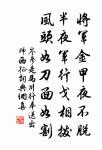 將軍金甲夜不脫
半夜軍行戈相撥
風頭如刀面如割
岑參走馬川行奉送出
師西征詞典網書